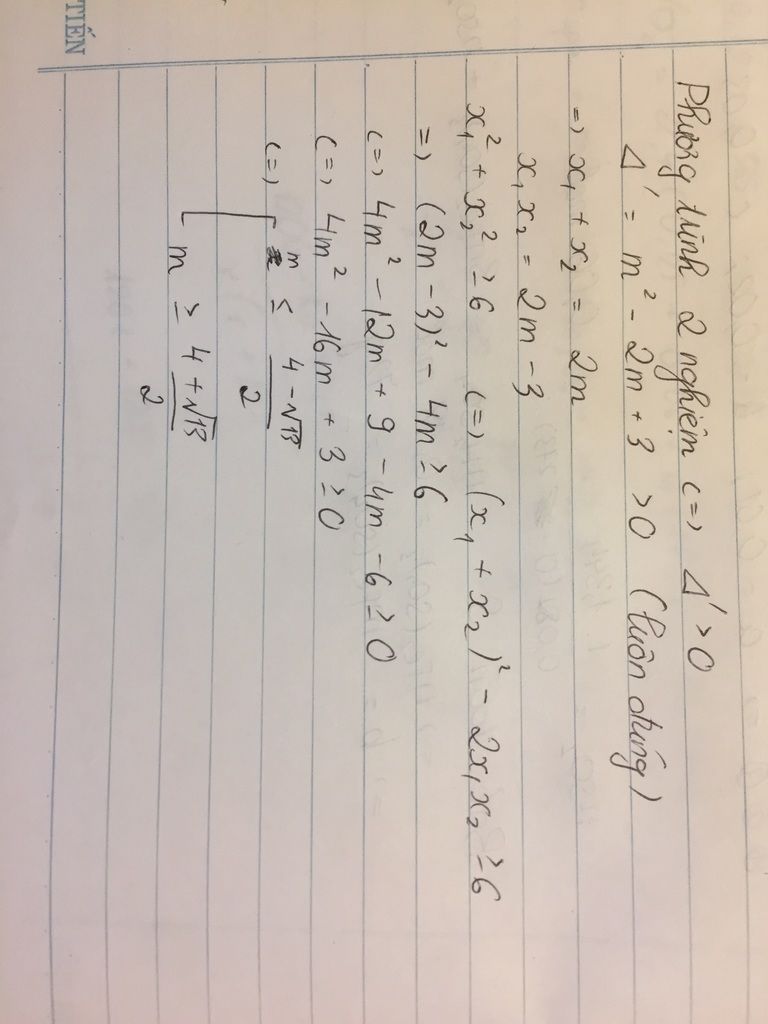 Phương trình 2 nghiệm <=> Δ' > 0
Δ' = m² - 2m + 3 > 0 (luôn đúng)
=> x₁ + x₂ = 2m
x₁x₂ = 2m - 3
x₁² + x₂² ≥ 6 <=> (x₁ + x₂)² - 2x₁x₂ ≥ 6
=> (2m - 3)² - 4m ≥ 6
<=> 4m² - 12m + 9 - 4m - 6 ≥ 0
<=> 4m² - 16m + 3 ≥ 0
<=> [ m ≤ (4 - √13)/2
m ≥ (4 + √13)/2
TIẾN